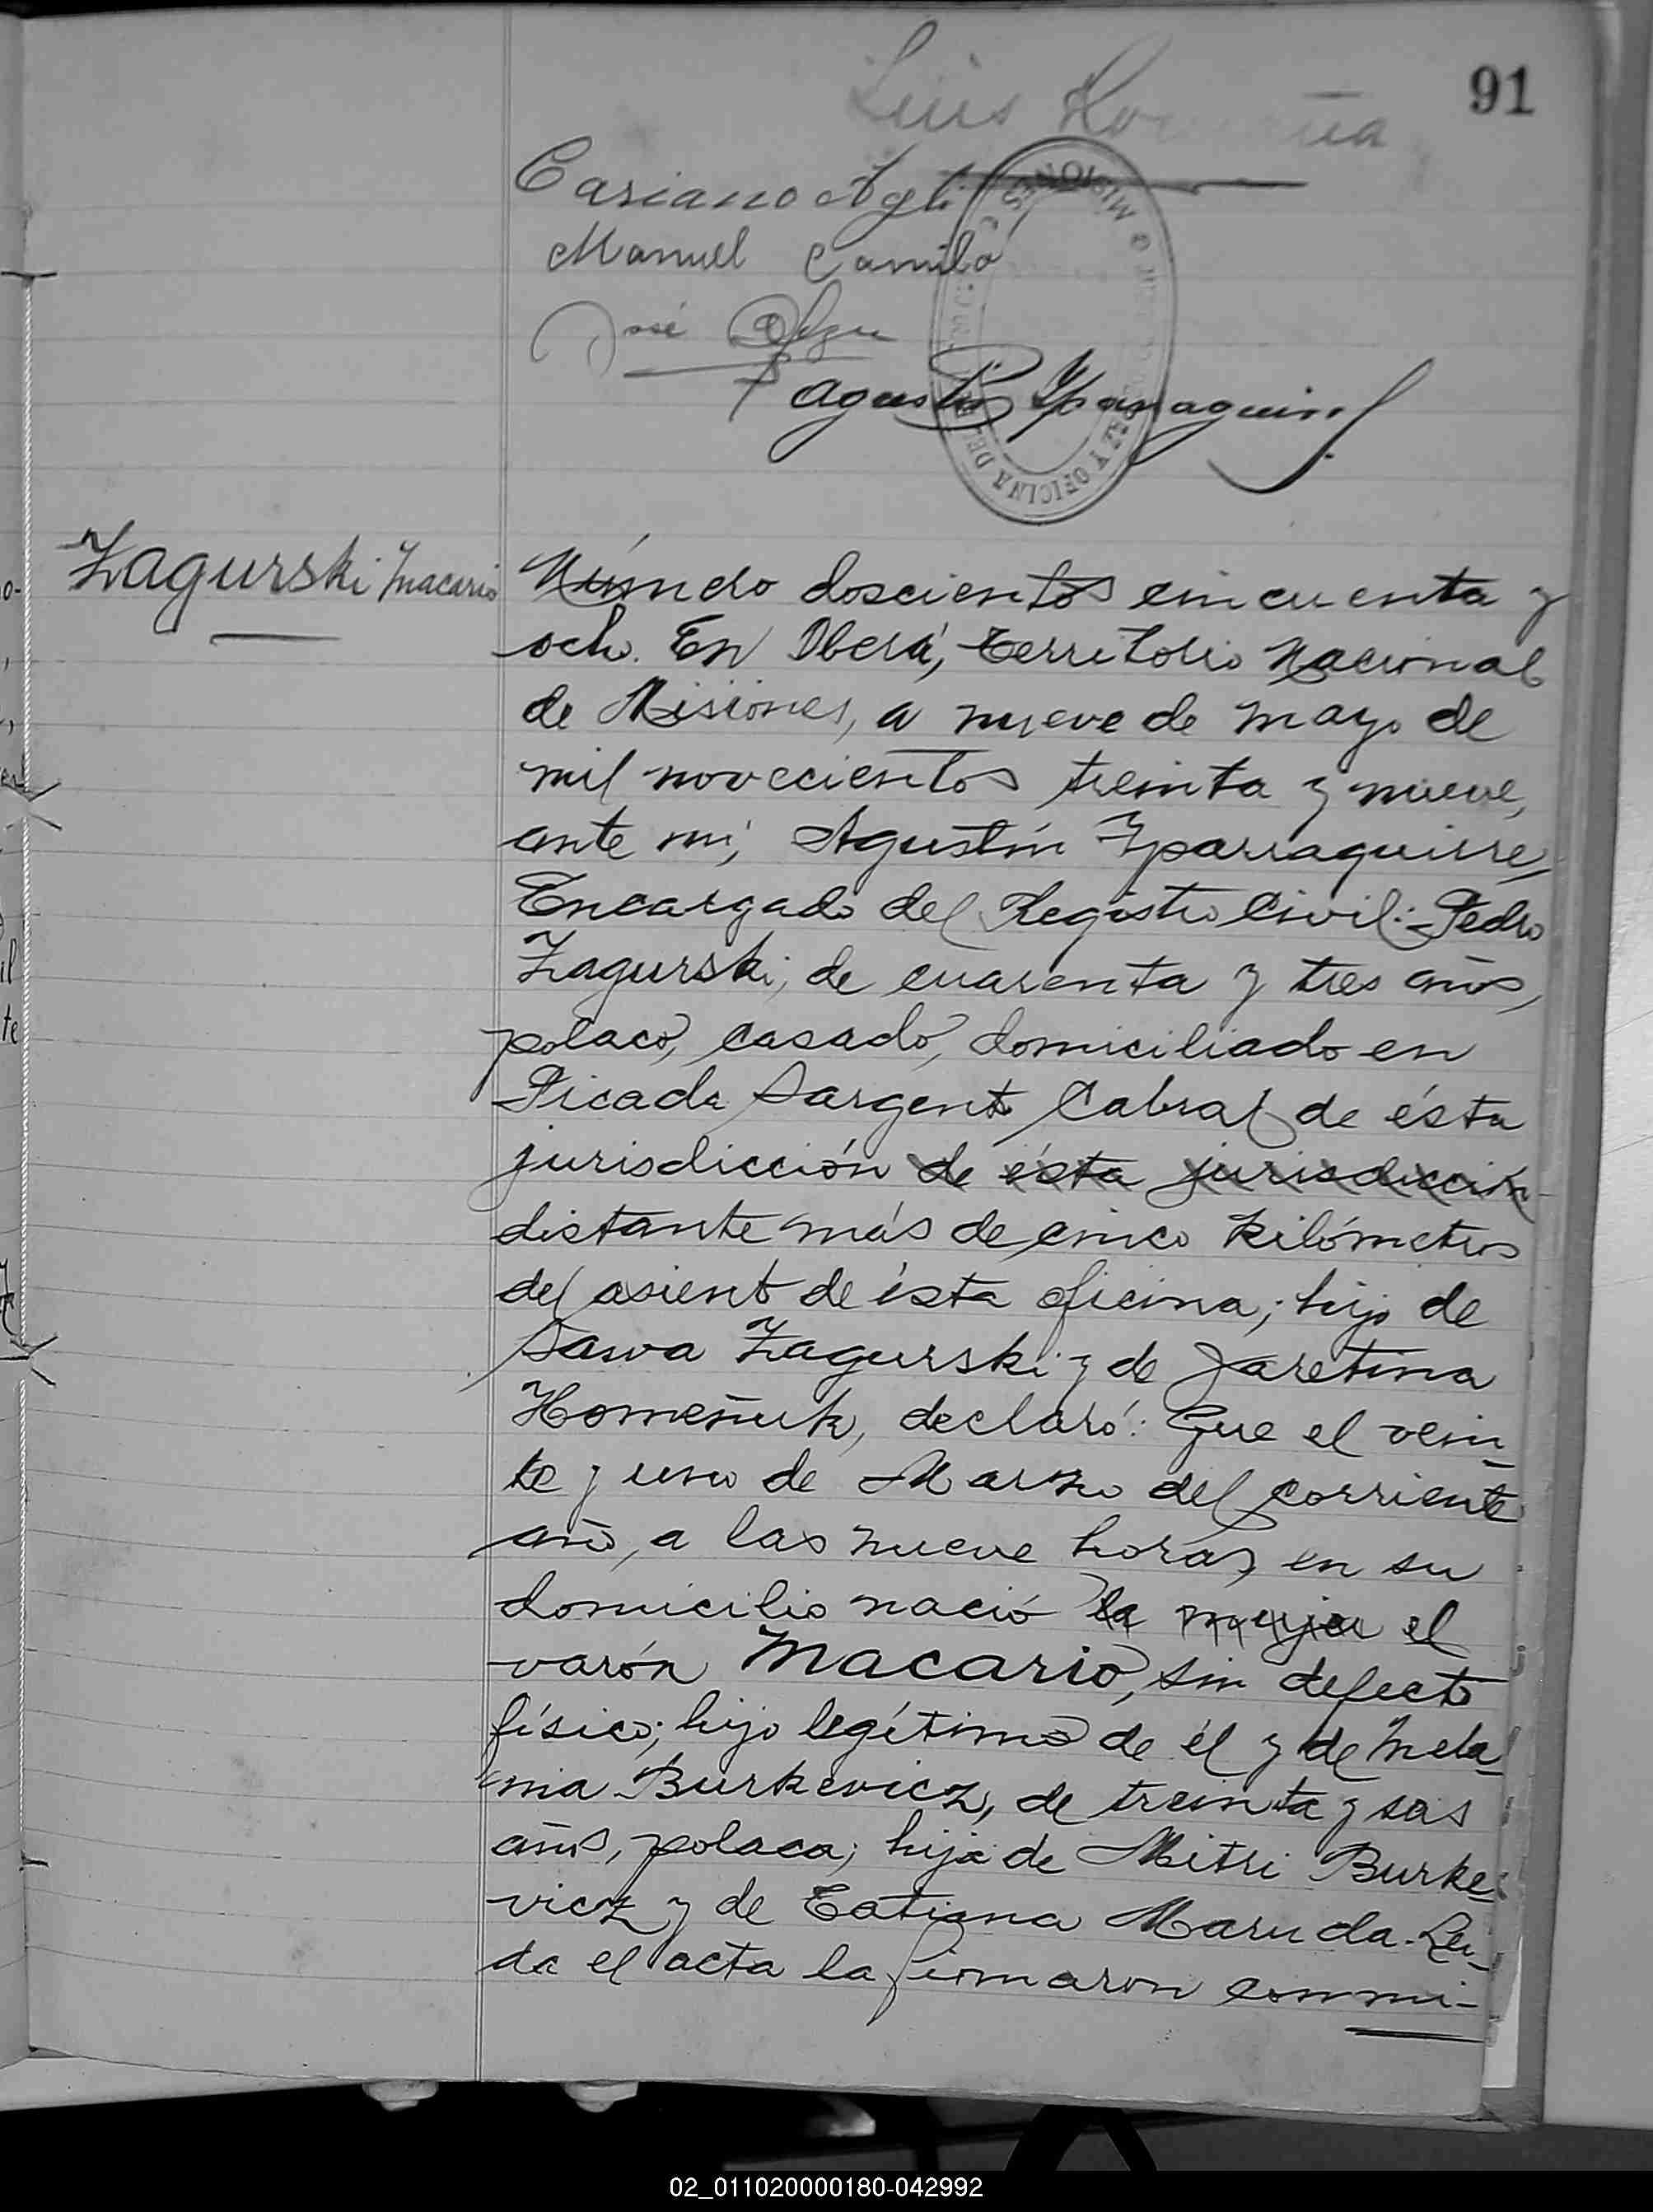 91
Luis
Casiano
Manuel Camilo
José
Agustín Yparraguirre
MISIONES
Zagurski Macario
Número doscientos cincuenta y
ocho. En Oberá, Territorio Nacional
de Misiones, a nueve de mayo de
mil novecientos treinta y nueve,
ante mi, Agustín Yparraguirre,
Encargado del Registro Civil: Pedro
Zagurski, de cuarenta y tres años,
polaco, casado, domiciliado en
Picada Sargento Cabral de ésta
jurisdicción de ésta jurisdicción
distante más de cinco kilómetros
del asiento de ésta oficina; hijo de
Sawa Zagurski y de Jaretina
Homeñuk, declaró: Que el vein-
te y uno de Marzo del corriente
año, a las nueve horas, en su
domicilio nació la mujer el
varón Macario, sin defecto
físico; hijo legítimo de él y de Mela-
nia Burkevicz, de treinta y seis
años, polaca; hija de Mitri Burke-
vicz y de Catiana Maruda. Leí-
da el acta la firmaron conmi-
02_011020000180-042992